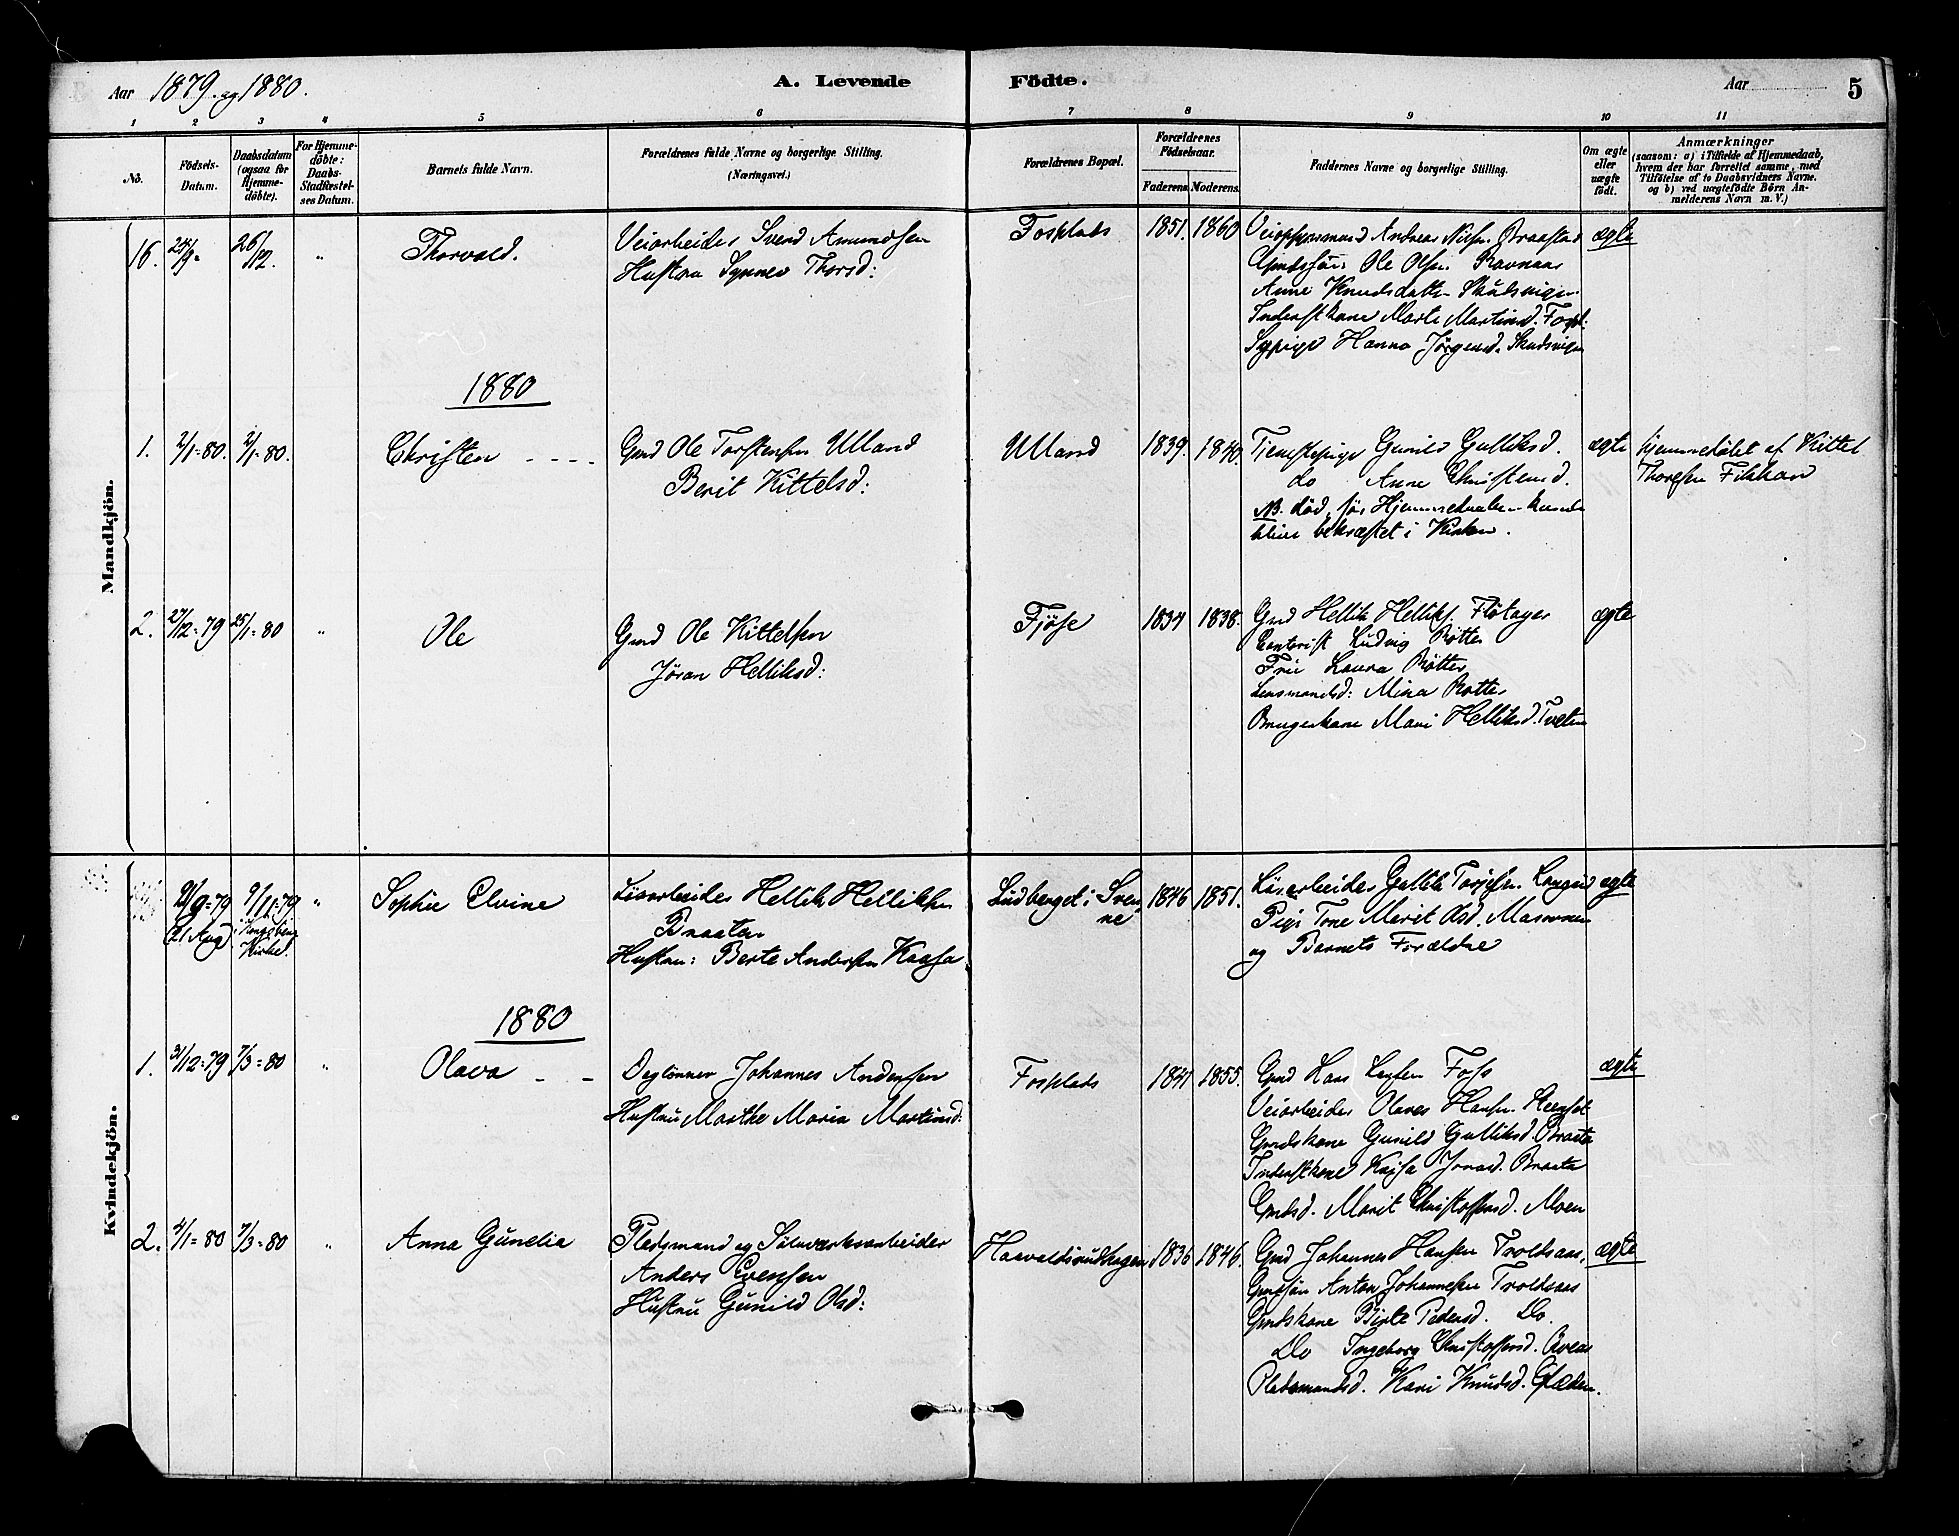 Aar 1879. og 1880.
A. Levende Födte.
Aar
5
1 2 3 4 5 6 7 8 9 10 11
No.
Födsels-
Datum.
Daabsdatum
(ogsaa for
Hjemme-
döbte).
For Hjemme-
döbte:
Daabs-
Stadfæstel-
ses Datum.
Barnets fulde Navn.
Forældrenes fulde Navne og borgerlige Stilling.
(Næringsvei.)
Forældrenes Bopæl.
Forældrenes
Födselsaar.
Faderens. Moderens.
Faddernes Navne og borgerlige Stilling.
Om ægte
eller
uægte
födt.
Anmærkninger
(saasom: a) i Tilfælde af Hjemmedaab,
hvem der har forrettet samme, med
Tilföielse af to Daabsvidners Navne.
og b) ved uægtefödte Börn An-
melderens Navn m. V.)
Mandkjön.
16. 24/9 26/12. " Thorvald.
Veiarbeider Svend Amundsen
Hustru Synnev Thorsd:
Fosplads 1851. 1860
Andreas Nilsen Braastad
Ole Olsen Ravnaas
Anne Knudsdatter Skudsvigen
Inderstkone Marte Martinsd. Fospl:
Sypige Hanna Jørgensd. Skudsvigen
ægte
1880
1. 2/1-80. 2/1-80. Christen
Gmd Ole Torstensen Ulland
Berit Kittelsd:
Ulland 1839. 1840.
Tjenestepige Gunild Gulliksd.
do Anne Christensd.
NB. død, før Hjemmedaaben kunde
blive bekræftet i Kirken.
ægte
Hjemmedøbt af Kittel
Thoresen
2. 27/12-79 25/1-80 " Ole
Gmd Ole Kittelsen
Jøran Helliksd:
Fjøse 1834 1838.
Gmd Hellik Helliks. Fløtager
Contorist Ludvig Røtter
Frü Laura Røtter
Lensmandsd: Mina Røtter
Brugerkone Mari Helliksd. Tveten
ægte
Kvindekjön.
21/9-79 (21 Aug) 9/11-79 i Kongsberg Kirke. " Sophie Elvine
Løsarbeider Hellik Helliksen
Braaten
Hustru: Berte Andersen Kaasa
Lüdberget i Sven-
ne 1846 1851.
Løsarbeider Gullik Torjesen
Pige Tone Marit Olsd. Masovnen
og Barnets Forældre
ægte
1880
1. 31/12-79 7/3-80 " Olava
Daglønner Johannes Andersen
Hustru Marthe Maria Martinsd:
Fosplads 1841 1855.
Gmd Hans Larsen Foss
Veiarbeider Olaves Hansen
Gmdskone Gunild Gulliksd. Braata
Inderstkone Kajsa Jonasd. Braata
Gmdsd. Marit Christoffersd. Moen
ægte
2. 4/1-80 7/3-80 " Anna Gunelia
Pladsmand og Sølvværksarbeider
Anders Evensen
Hustru Gunild Olsd:
Haavaldsrudhagen 1836 1846.
Gmd Johannes Hansen Troldsaas,
Gmdsøn Anton Johannesen Troldsaas
Gmdskone Birte Pedersd. Do.
Do Ingeborg Christoffersd.
Pladsmandsd. Kari Knudsd.
ægte